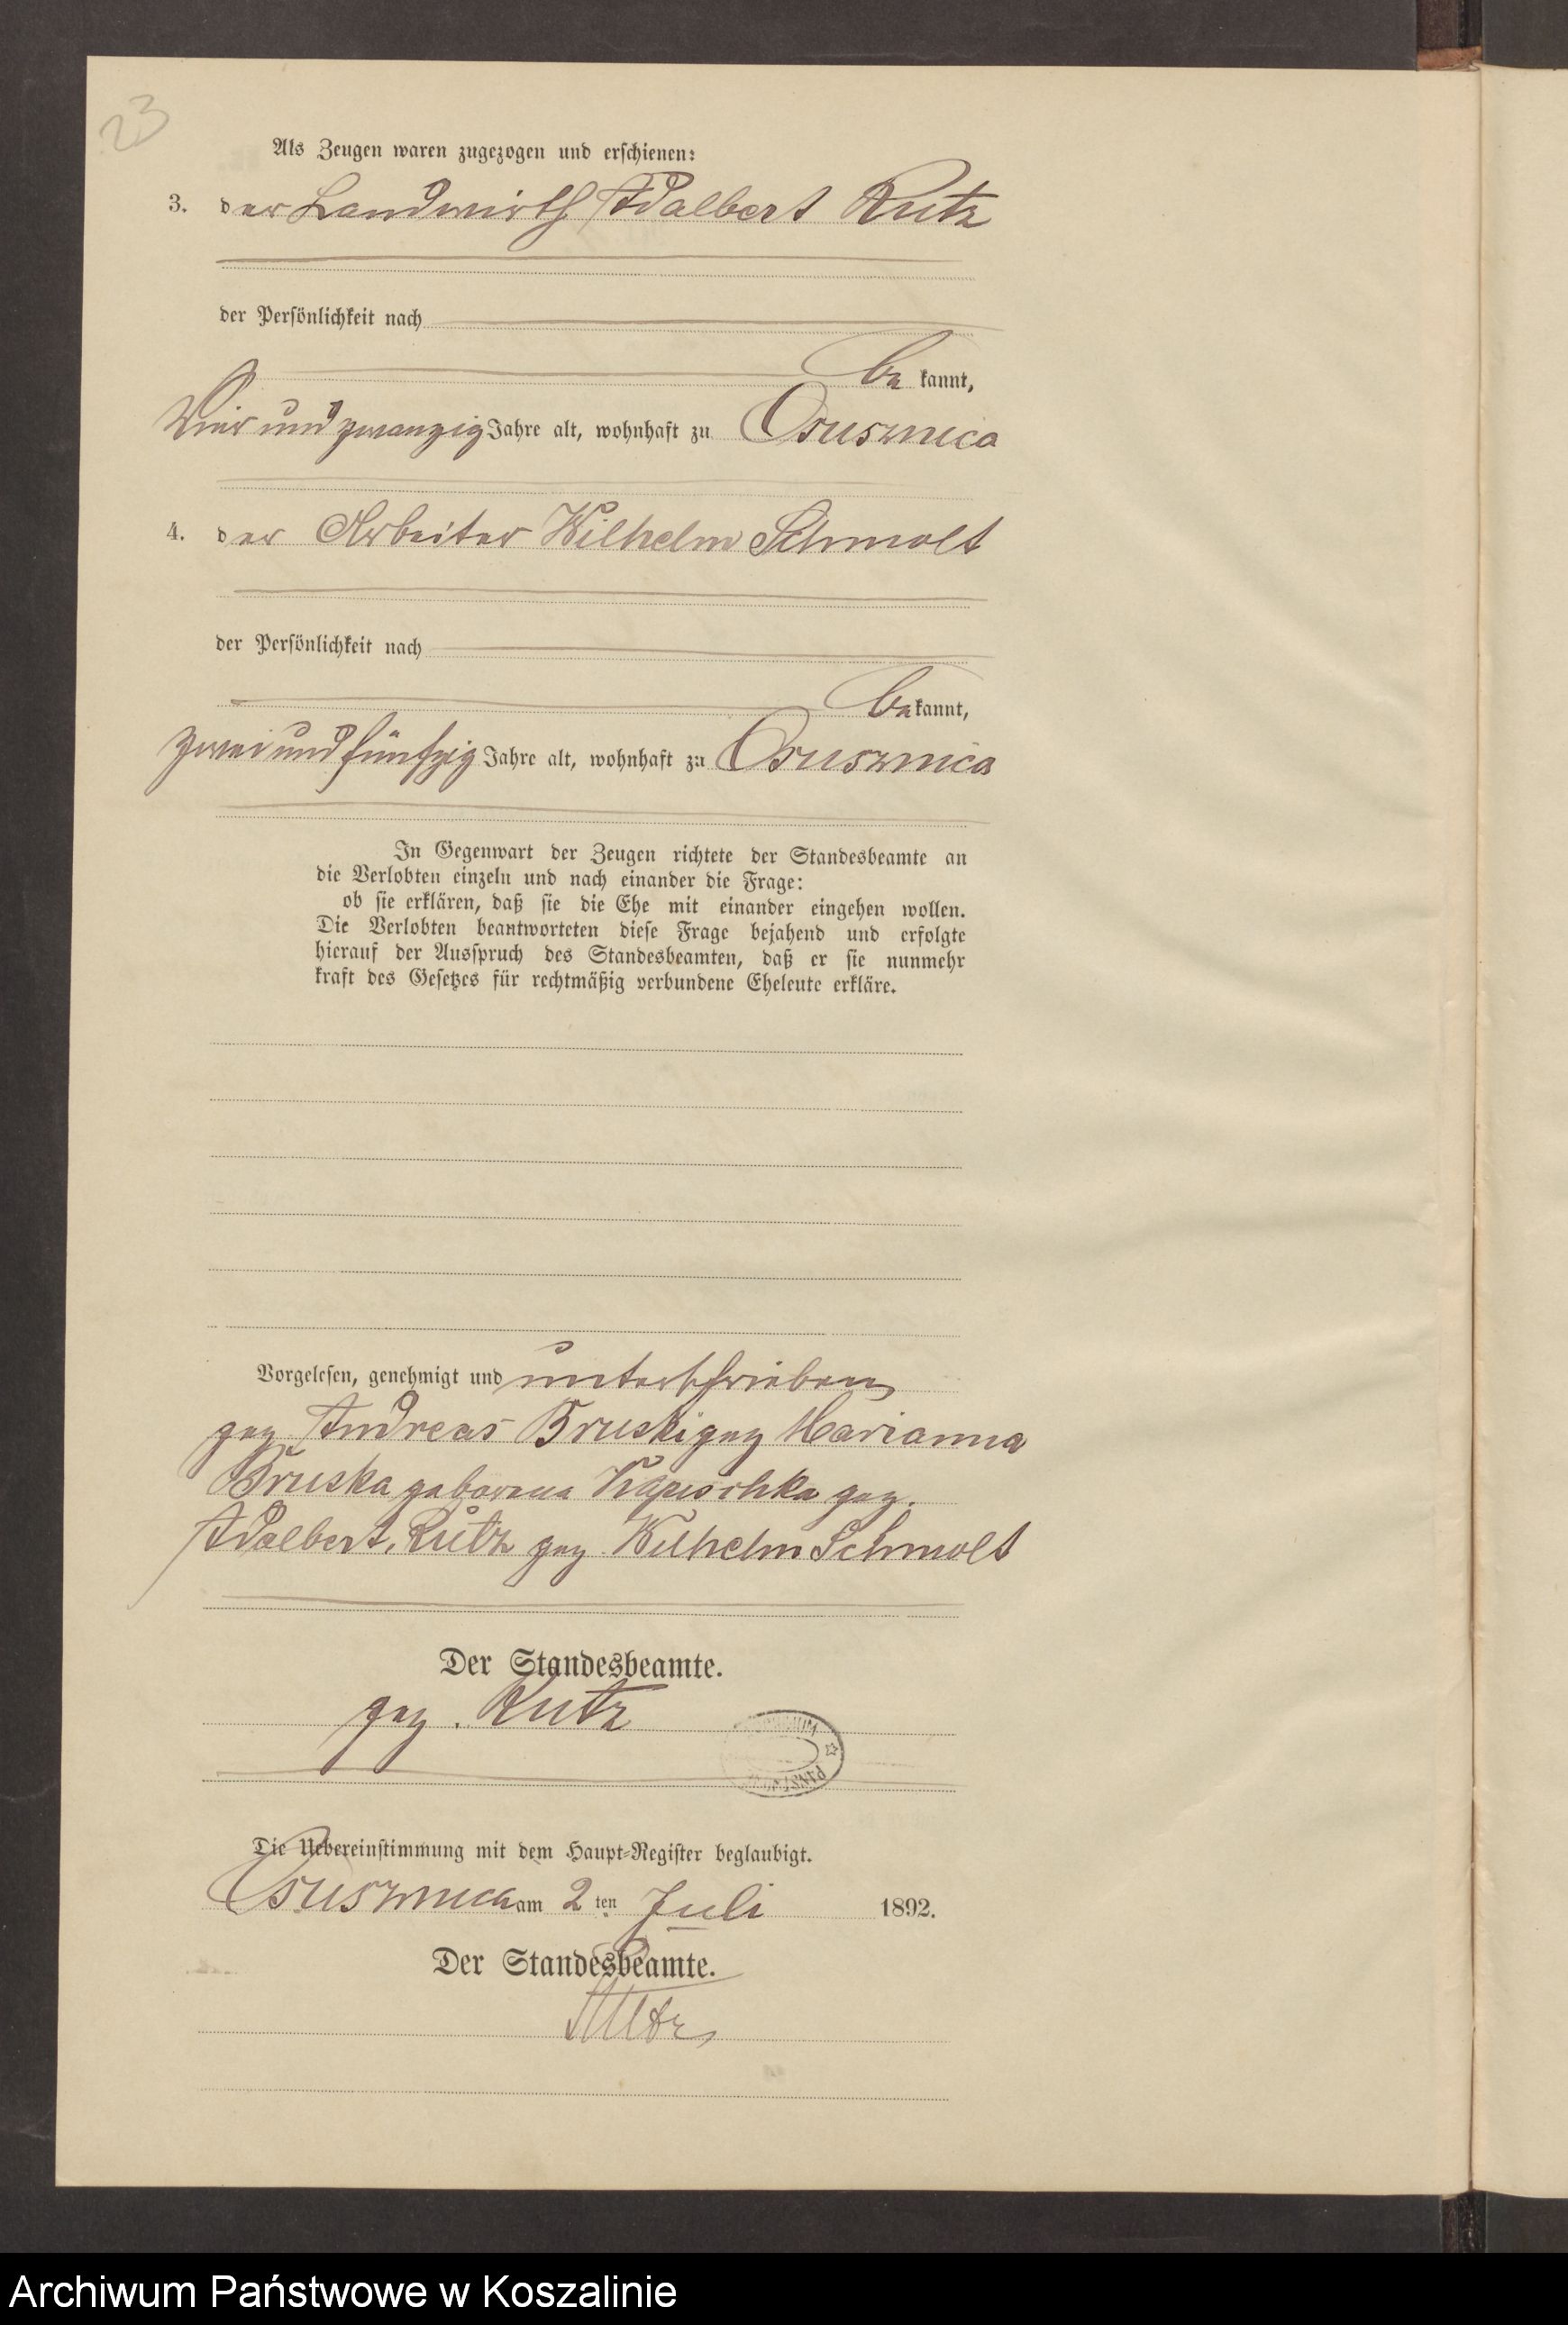 23
Als Zeugen waren zugezogen und erschienen:
3. der Landwirth Adalbert Rutz
der Persönlichkeit nach
be kannt,
Vier und zwanzig Jahre alt, wohnhaft zu Osusznica
4. der Arbeiter Wilhelm Schmolt
der Persönlichkeit nach
be kannt,
zwei und fünfzig Jahre alt, wohnhaft zu Osusznica
In Gegenwart der Zeugen richtete der Standesbeamte an
die Verlobten einzeln und nach einander die Frage:
ob sie erklären, daß sie die Ehe mit einander eingehen wollen.
Die Verlobten beantworteten diese Frage bejahend und erfolgte
hierauf der Ausspruch des Standesbeamten, daß er sie nunmehr
kraft des Gesetzes für rechtmäßig verbundene Eheleute erkläre.
Vorgelesen, genehmigt und unterschrieben
gez Andreas Bruski gez Marianna
Bruska geborene gez.
Adalbert Rutz gez Wilhelm Schmolt
Der Standesbeamte.
gez. Rutz
Die Uebereinstimmung mit dem Haupt-Register beglaubigt.
Osusznica am 2 ten Juli 1892.
Der Standesbeamte.
Rutz
Archiwum Państwowe w Koszalinie